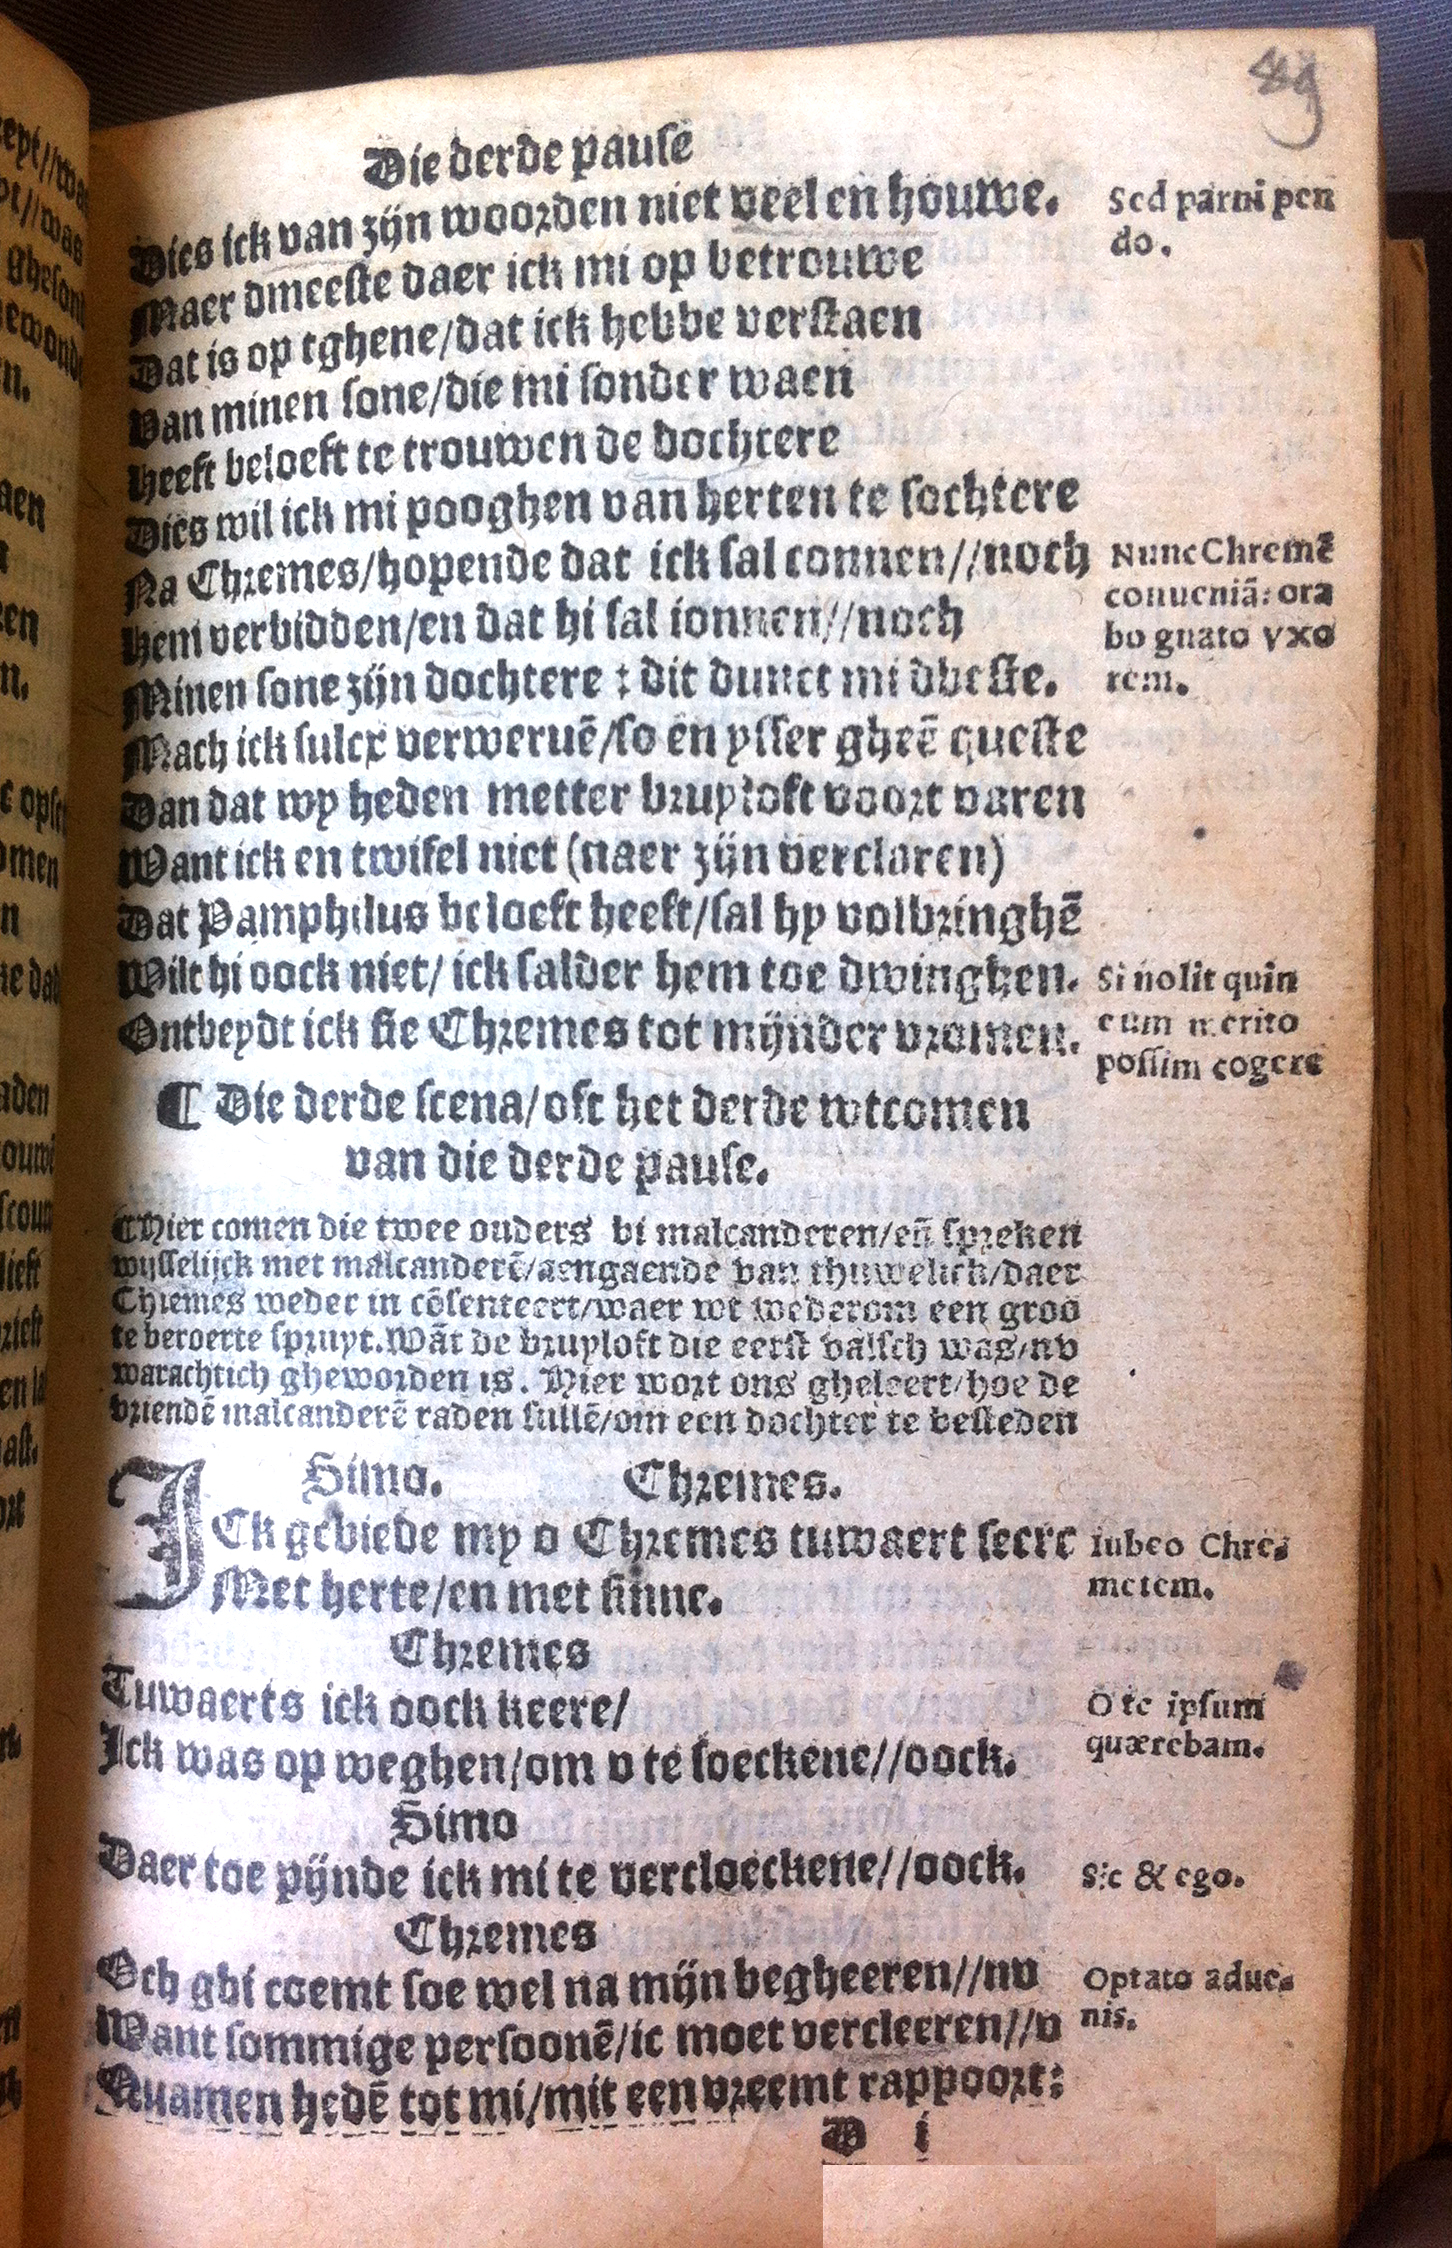 49
Die derde pause
Dies ick van zijn woorden niet veel en houwe.
Sed parui pen
do.
Maer dmeeste daer ick mi op betrouwe
Dat is op tghene/dat ick hebbe verstaen
Van minen sone/die mi sonder waen
Heeft beloeft te trouwen de dochtere
Dies wil ick mi pooghen van herten te sochtere
Na Chremes/hopende dat ick sal connen//noch
Nunc Chremē
conueniā: ora
bo gnato vxo
rem.
Hem verbidden/en dat hi sal ionnen//noch
Minen sone zijn dochtere : dit dunct mi dbeste.
Mach ick sulcx verweruē/so en ysser gheē queste
Dan dat wy heden metter bruyloft voort varen
Want ick en twifel niet (naer zijn verclaren)
Dat Pamphilus beloeft heeft/sal hy volbringhē
Wilt hi oock niet/ ick salder hem toe dwinghen.
Si nolit quin
eum merito
possim cogere
Ontbeydt ick sie Chremes tot mijnder vromen.
¶ Die derde scena/oft het derde wtcomen
van die derde pause.
¶Hier comen die twee ouders bi malcanderen/eñ spreken
wijsselijck met malcanderē/aengaende van thuwelick/daer
Chremes weder in cōsenteert/waer wt wederom een groo
te beroerte spruyt. Wāt de bruyloft die eerst valsch was/nv
warachtich gheworden is. Hier wort ons gheleert/hoe de
vriendē malcanderē raden sullē/om een dochter te besteden
Simo. Chremes.
ICk gebiede my v Chremes tuwaert seere
Iubeo Chre-
metem.
Met herte/en met sinne.
Chremes
Tuwaerts ick oock keere/
O te ipsum
quærebam.
Ick was op weghen/om v te soeckene//oock.
Simo
Daer toe pijnde ick mi te vercloeckene//oock.
Sic & ego.
Chremes
Och ghi coemt soe wel na mijn begheeren//nv
Optato adue-
nis.
Want sommige persoonē/ic moet vercleeren//v
Quamen hedē tot mi/mit een vreemt rappoort:
D i